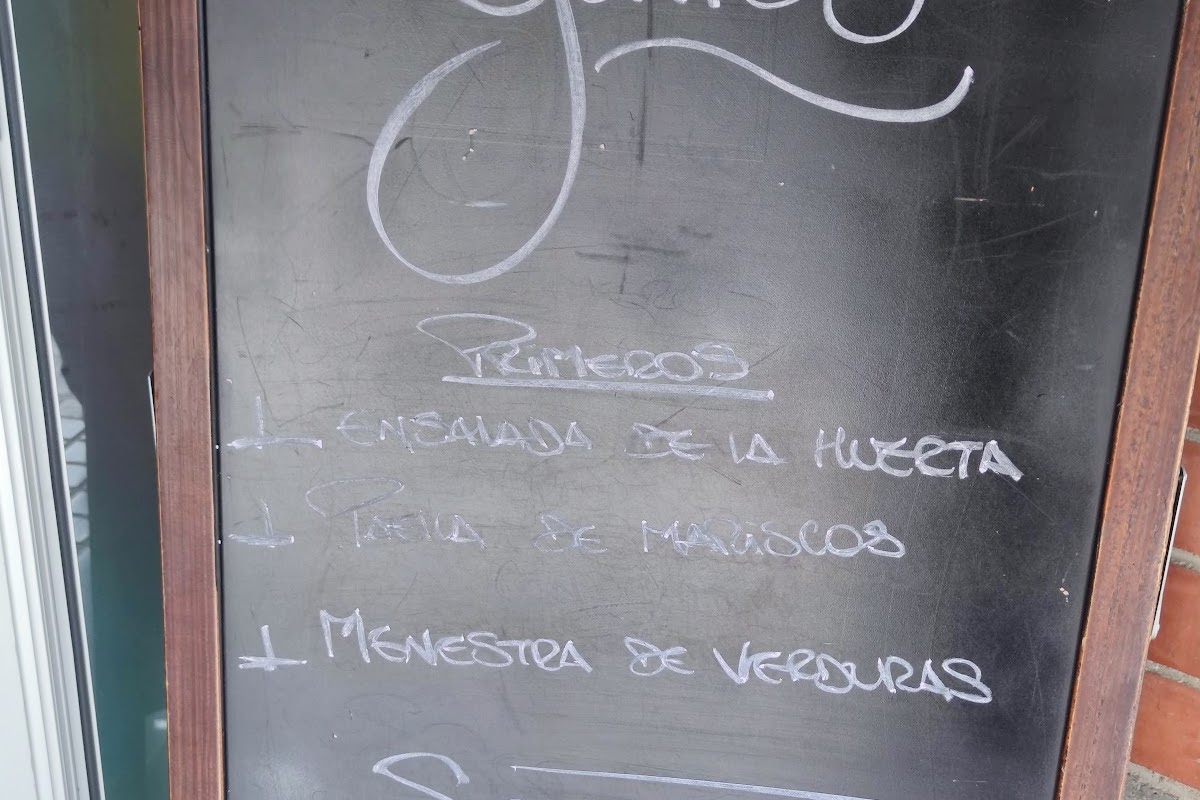 PRIMEROS
ENSALADA DE LA HUERTA
PAELLA DE MARISCOS
MENESTRA DE VERDURAS